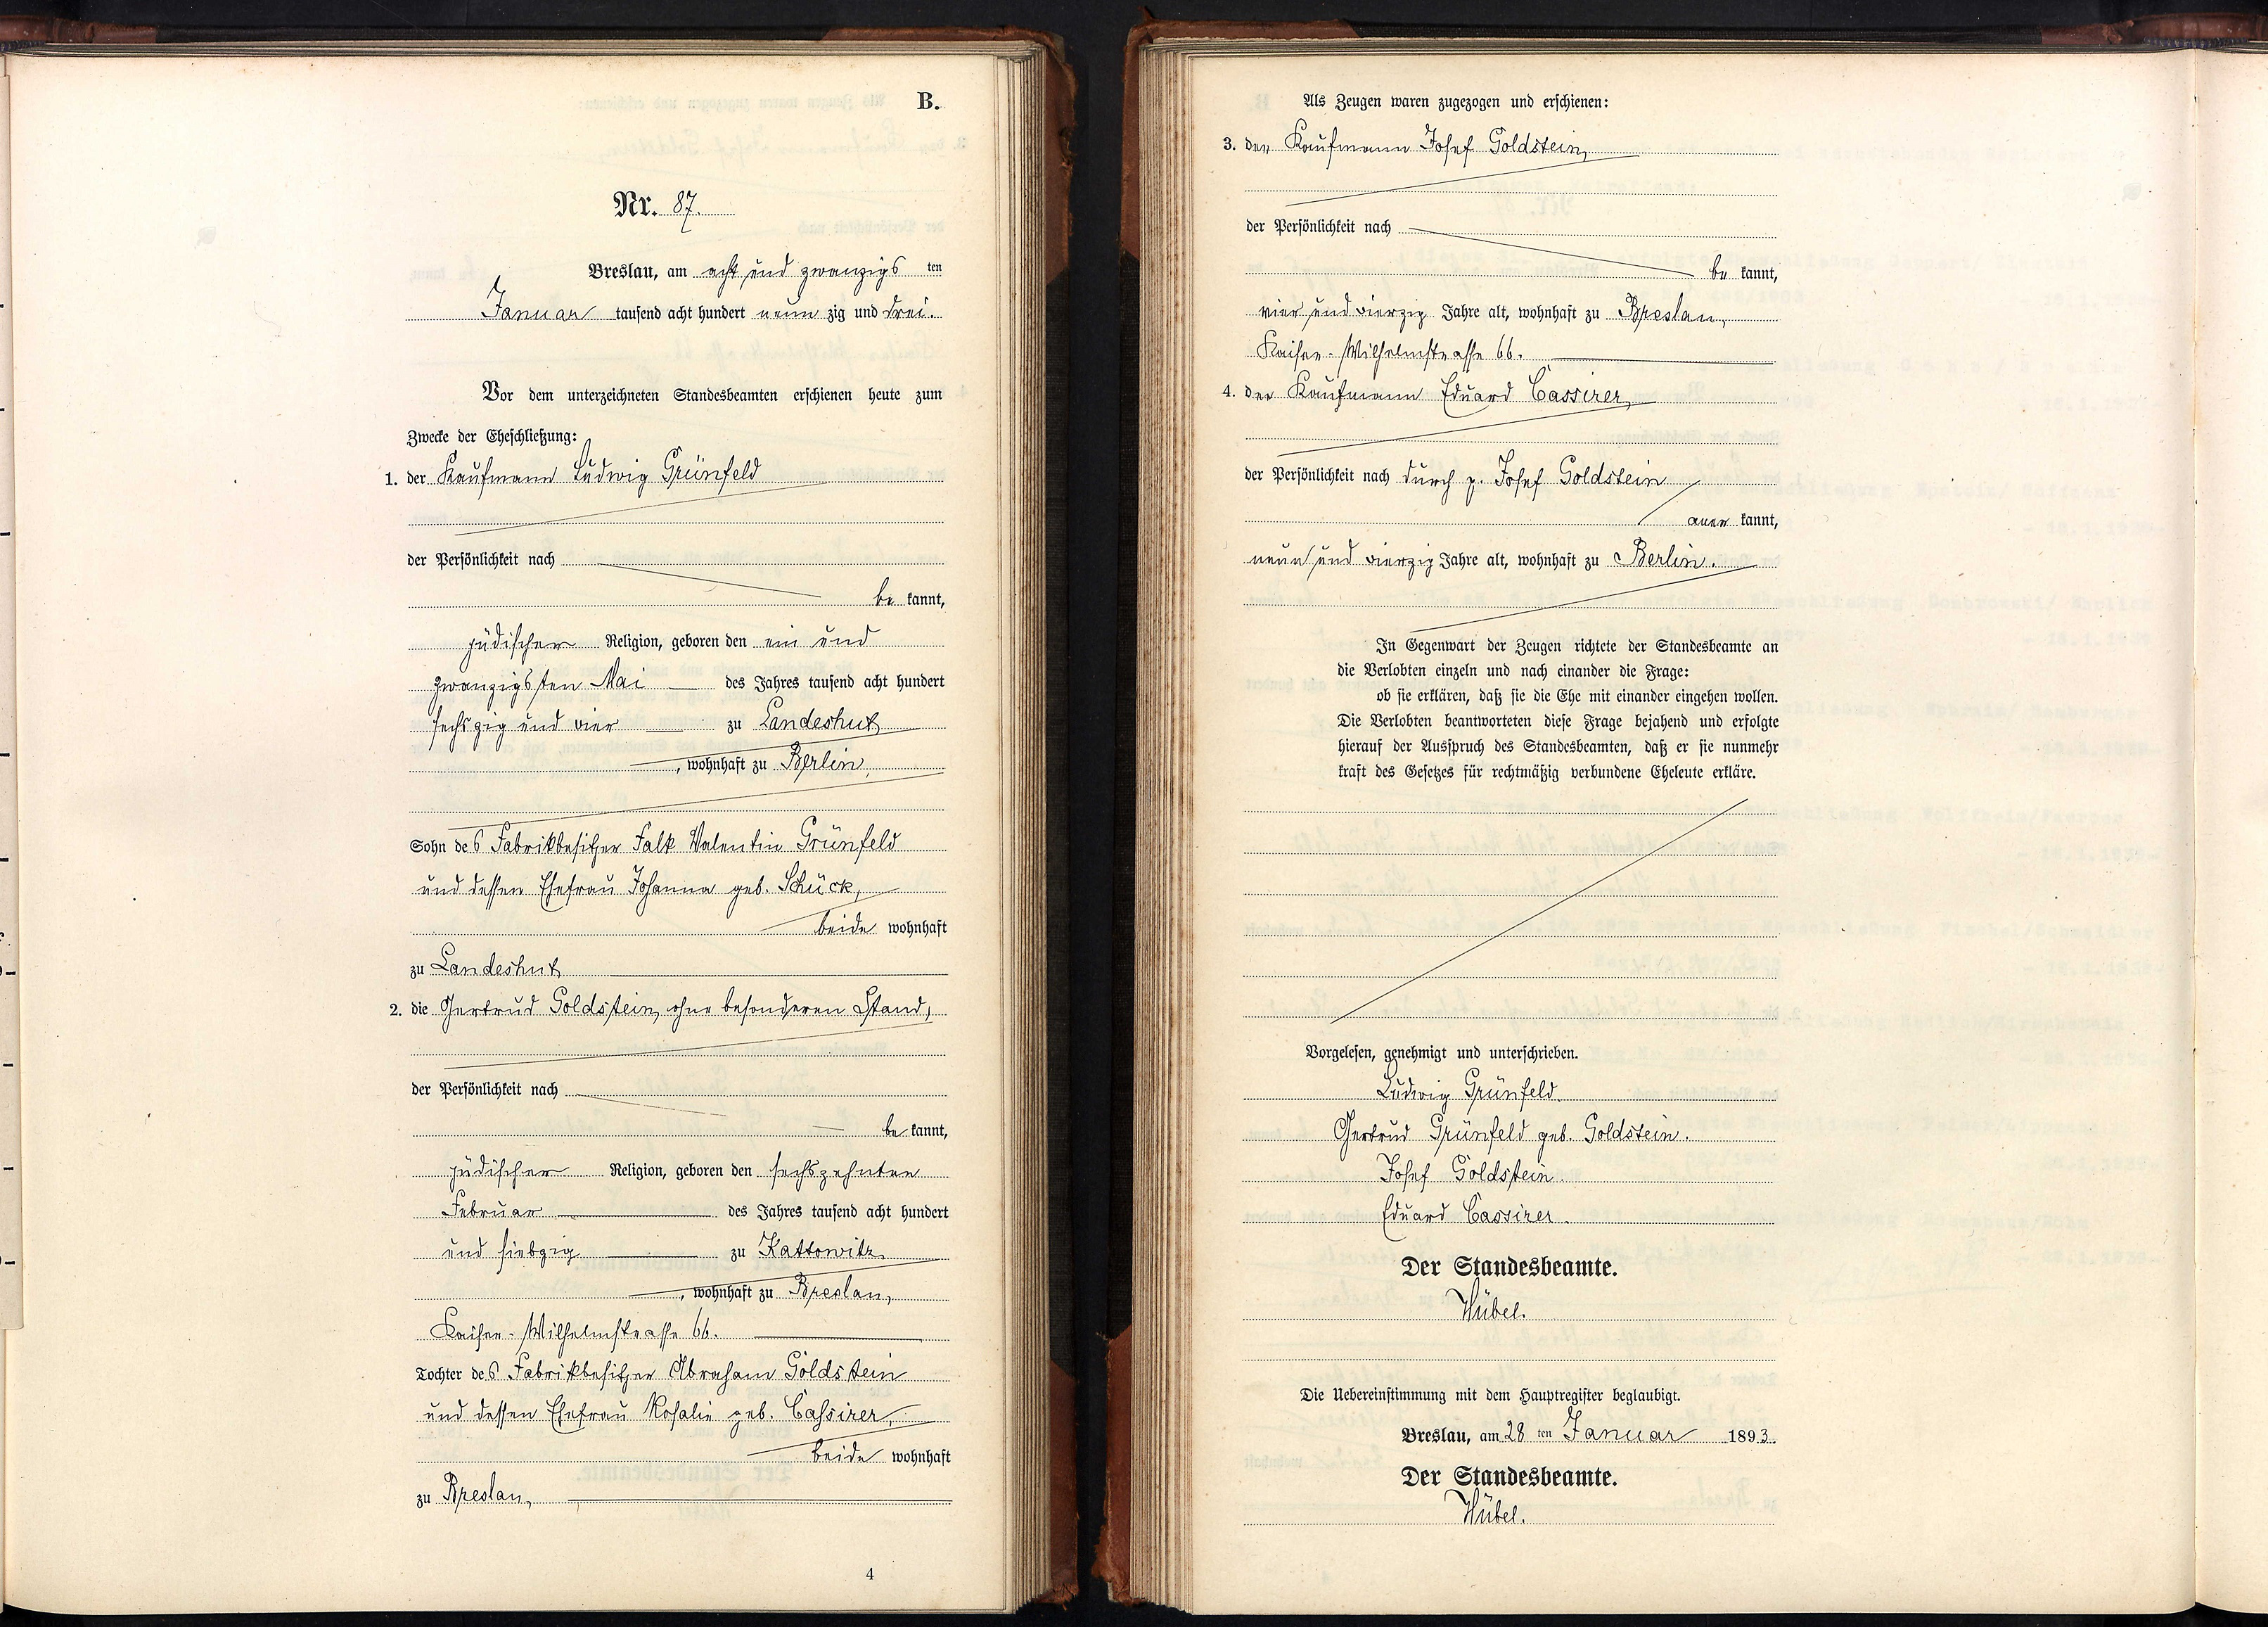 B.
Nr. 87.
Breslau, am acht und zwanzigs ten
Januar tausend acht hundert neun zig und drei.
Vor dem unterzeichneten Standesbeamten erschienen heute zum
Zwecke der Eheschließung:
1. der Kaufmann Ludwig Grünfeld
der Persönlichkeit nach
be kannt,
jüdischer Religion, geboren den ein und
zwanzigsten Mai des Jahres tausend acht hundert
sechszig und vier zu Landeshut
, wohnhaft zu Berlin,
Sohn des Fabrikbesitzer Falk Valentin Grünfeld
und dessen Ehefrau Johanna geb. Schück,
beide wohnhaft
zu Landeshut
2. die Gertrud Goldstein, ohne besonderen Stand,
der Persönlichkeit nach
be kannt,
jüdischer Religion, geboren den sechszehnten
Februar des Jahres tausend acht hundert
und siebzig zu Kattowitz
, wohnhaft zu Breslau,
Kaiser-Wilhelmstrasse 66.
Tochter des Fabrikbesitzer Abraham Goldstein
und dessen Ehefrau Rosalie geb. Cassirer,
beide wohnhaft
zu Breslau,
4
Als Zeugen waren zugezogen und erschienen:
3. der Kaufmann Josef Goldstein,
der Persönlichkeit nach
be kannt,
vier und vierzig Jahre alt, wohnhaft zu Breslau,
Kaiser-Wilhelmstrasse 66.
4. der Kaufmann Eduard Cassirer,
der Persönlichkeit nach durch p. Josef Goldstein
aner kannt,
neun und vierzig Jahre alt, wohnhaft zu Berlin.
In Gegenwart der Zeugen richtete der Standesbeamte an
die Verlobten einzeln und nach einander die Frage:
ob sie erklären, daß sie die Ehe mit einander eingehen wollen.
Die Verlobten beantworteten diese Frage bejahend und erfolgte
hierauf der Ausspruch des Standesbeamten, daß er sie nunmehr
kraft des Gesetzes für rechtmäßig verbundene Eheleute erkläre.
Vorgelesen, genehmigt und unterschrieben.
Ludwig Grünfeld.
Gertrud Grünfeld geb. Goldstein.
Josef Goldstein.
Eduard Cassirer.
Der Standesbeamte.
Hübel.
Die Uebereinstimmung mit dem Hauptregister beglaubigt.
Breslau, am 28 ten Januar 1893.
Der Standesbeamte.
Hübel.